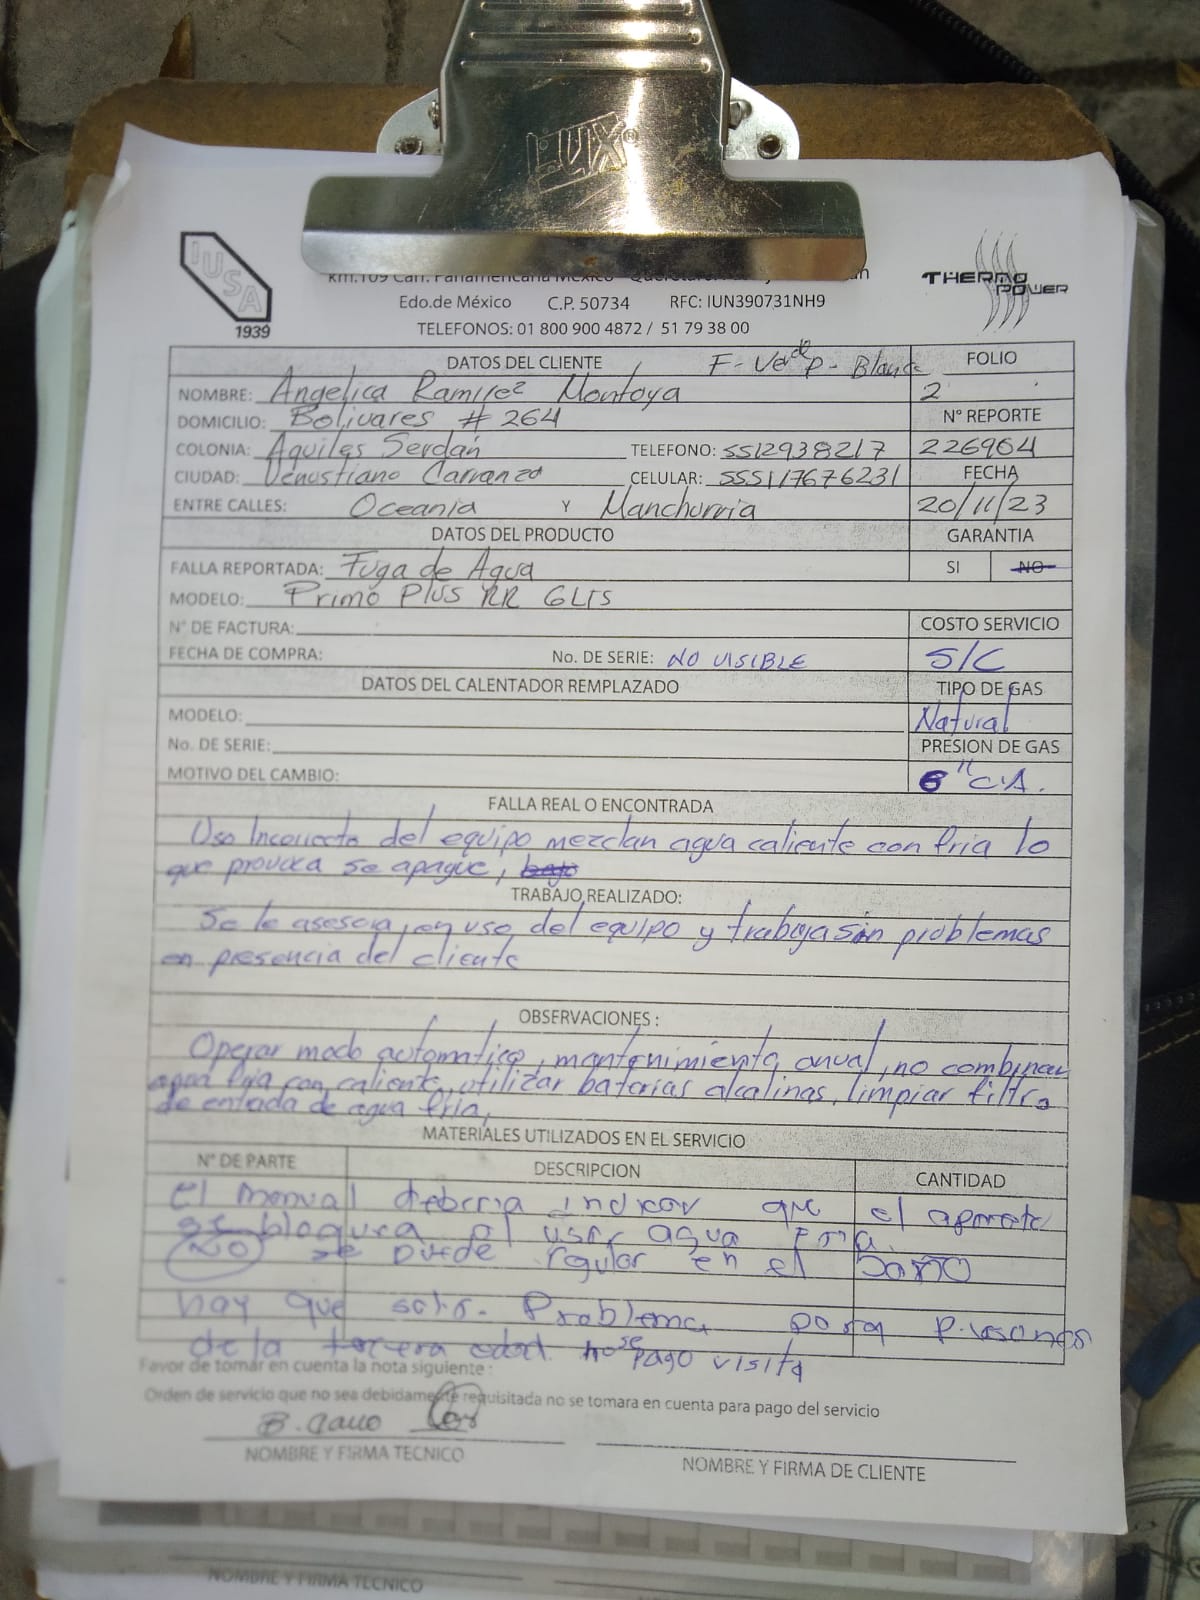 LUX®
IUSA
1939
km.109 Carr. Panamericana México - Querétaro
Edo.de México C.P. 50734 RFC: IUN390731NH9
TELEFONOS: 01 800 900 4872 / 51 79 38 00
THERMO POWER
DATOS DEL CLIENTE F- Verde P- Blanca FOLIO
NOMBRE: Angelica Ramirez Montoya 2
DOMICILIO: Bolivares # 264 N° REPORTE
COLONIA: Aquiles Serdán TELEFONO: 5512938217 226904
CIUDAD: Venustiano Carranza CELULAR: 555117676231 FECHA
ENTRE CALLES: Oceania Y Manchurria 20/11/23
DATOS DEL PRODUCTO GARANTIA
FALLA REPORTADA: Fuga de Agua SI NO
MODELO: Primo Plus RR 6LTS
N° DE FACTURA: COSTO SERVICIO
FECHA DE COMPRA: No. DE SERIE: NO VISIBLE S/C
DATOS DEL CALENTADOR REMPLAZADO TIPO DE GAS
MODELO: Natural
No. DE SERIE: PRESION DE GAS
MOTIVO DEL CAMBIO: 6" CA.
FALLA REAL O ENCONTRADA
Uso Incorrecto del equipo mezclan agua caliente con fria lo
que provoca se apague, bajo
TRABAJO REALIZADO:
Se le asesora, en uso del equipo y trabaja sin problemas
en presencia del cliente
OBSERVACIONES :
Operar modo automatico, mantenimiento anual, no combinar
agua fria con caliente, utilizar baterias alcalinas, limpiar filtro
de entrada de agua fria,
MATERIALES UTILIZADOS EN EL SERVICIO
N° DE PARTE DESCRIPCION CANTIDAD
El manual deberia indicar que el aparato
se bloquea al usar agua fria.
NO se puede regular en el baño
hay que salir. Problema para personas
de la tercera edad. no se pago visita
Favor de tomar en cuenta la nota siguiente :
Orden de servicio que no sea debidamente requisitada no se tomara en cuenta para pago del servicio
NOMBRE Y FIRMA TECNICO
NOMBRE Y FIRMA DE CLIENTE
NOMBRE Y FIRMA TECNICO